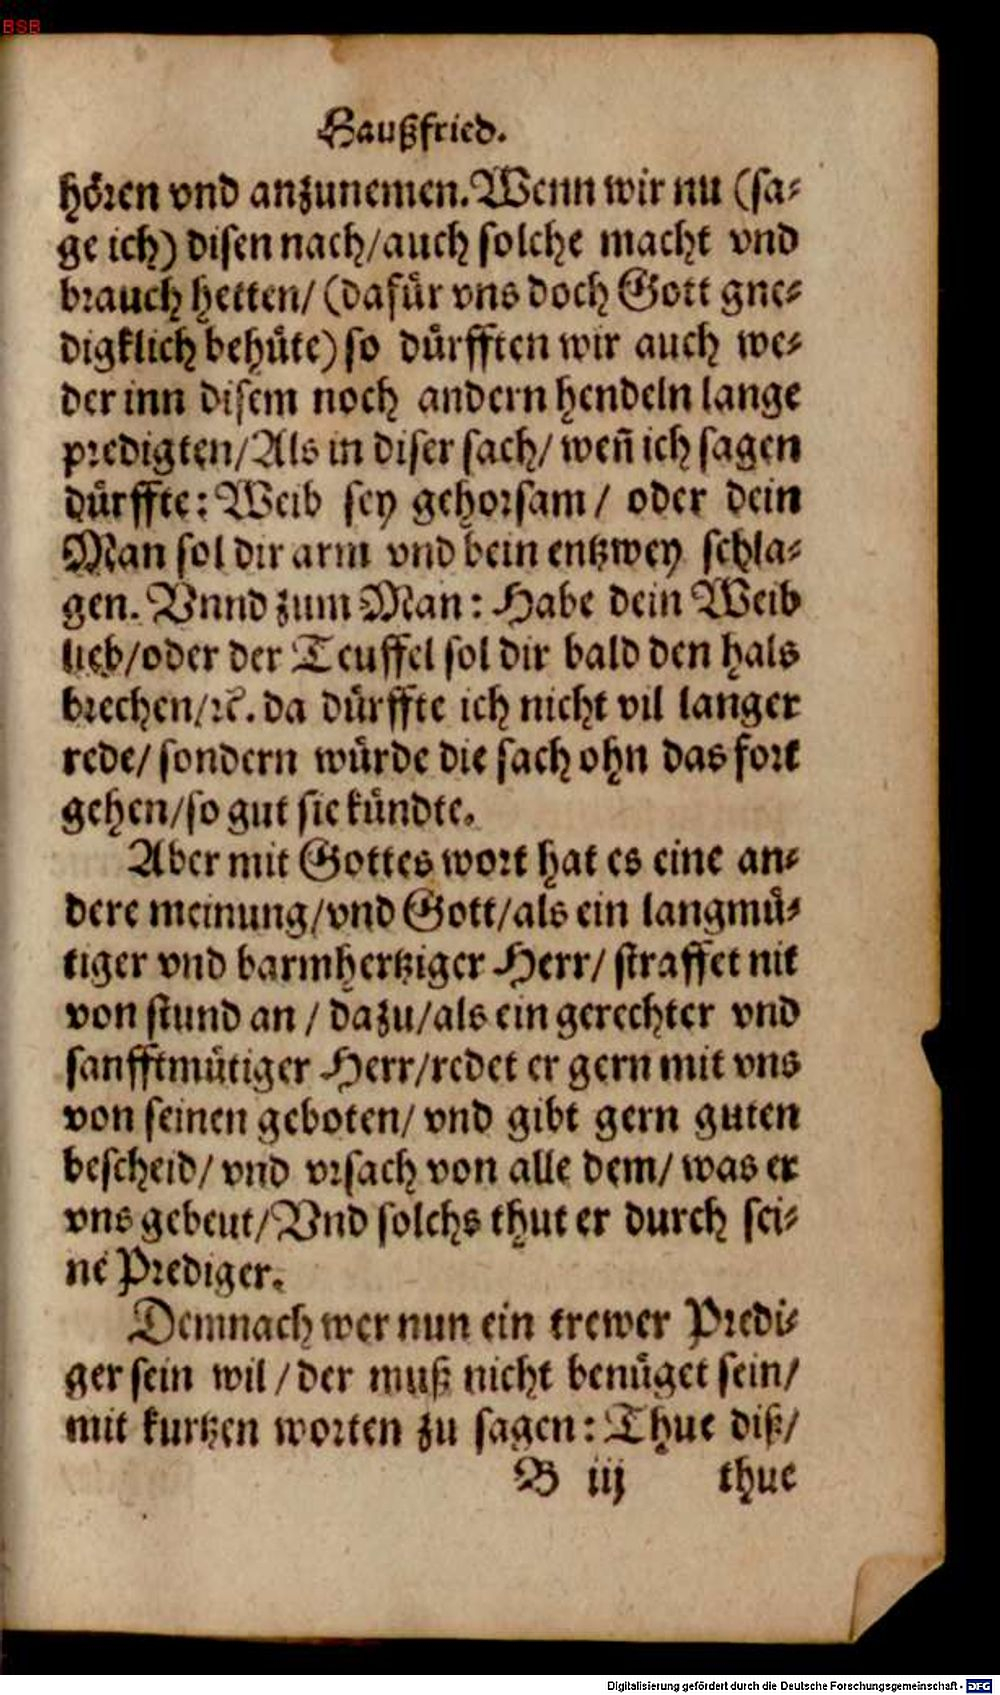 BSB
Haußfried.
hören vnd anzunemen. Wenn wir nu (sa⸗
ge ich) disen nach/auch solche macht vnd
brauch hetten/ (dafür vns doch Gott gne⸗
digklich behüte) so dürfften wir auch we⸗
der inn disem noch andern hendeln lange
predigten/Als in diser sach/ weñ ich sagen
dürffte: Weib sey gehorsam / oder dein
Man sol dir arm vnd bein entzwey schla⸗
gen. Vnnd zum Man: Habe dein Weib
lieb/oder der Teuffel sol dir bald den hals
brechen/ꝛc̃. da dürffte ich nicht vil langer
rede/ sondern würde die sach ohn das fort
gehen/so gut sie kündte.
Aber mit Gottes wort hat es eine an⸗
dere meinung/vnd Gott/als ein langmü⸗
tiger vnd barmhertziger Herr/ straffet nit
von stund an / dazu/als ein gerechter vnd
sanfftmütiger Herr/redet er gern mit vns
von seinen geboten/ vnd gibt gern guten
bescheid/ vnd vrsach von alle dem/ was er
vns gebeut/Vnd solchs thut er durch sei⸗
ne Prediger.
Demnach wer nun ein trewer Predi⸗
ger sein wil /der muß nicht benüget sein/
mit kurtzen worten zu sagen: Thue diß/
B iij thue
Digitalisierung gefördert durch die Deutsche Forschungsgemeinschaft - DFG